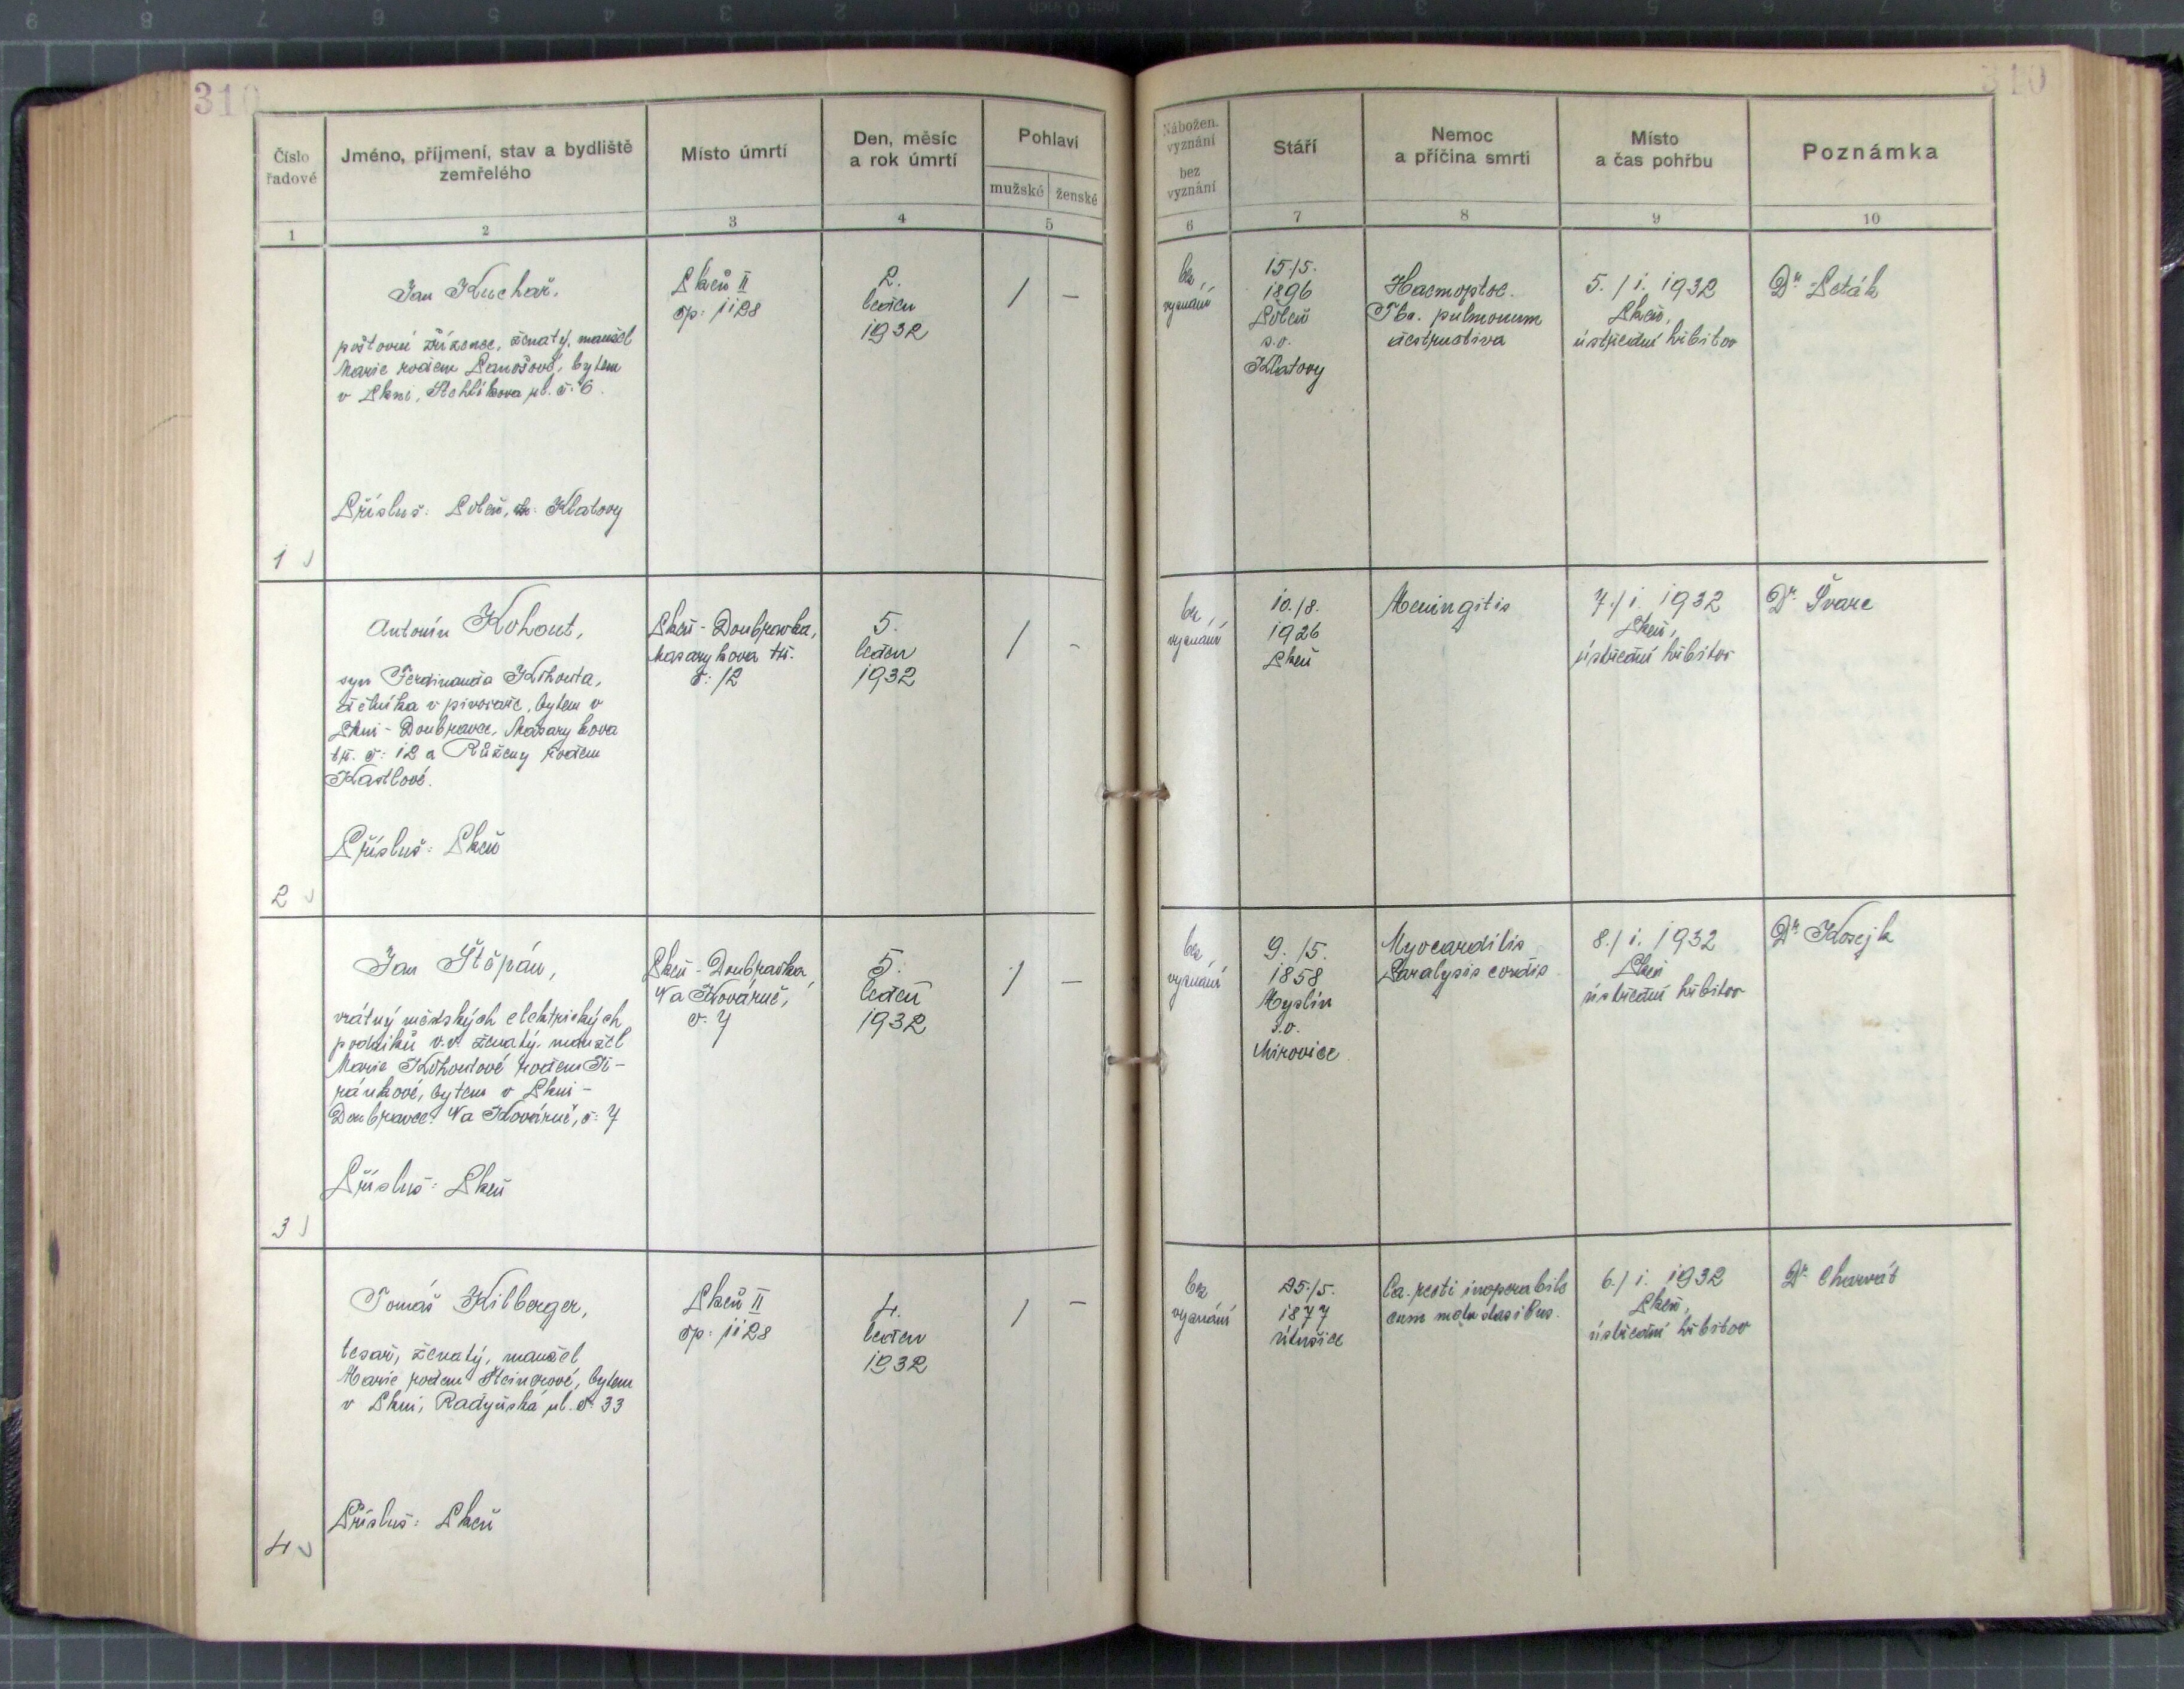 310
310
Číslo řadové
Jméno, příjmení, stav a bydliště zemřelého
Místo úmrtí
Den, měsíc a rok úmrtí
Pohlaví
mužské
ženské
Nábožen. vyznání
bez vyznání
Stáří
Nemoc a příčina smrti
Místo a čas pohřbu
Poznámka
1 2 3 4 5 6 7 8 9 10
1
Jan Kuchař,
poštovní zřízenec, ženatý, manžel
Marie rodem
bytem
v Plzni,
ul. č. 6.
Přísluš: Klatovy
Plzeň II
čp: 1128
2.
leden
1932
/ –
bez
vyznání
15./5.
1896
s.o.
Klatovy
Haemoptoe.
Tbc. pulmonum
destructiva
5./i. 1932
Plzeň,
ústřední hřbitov
Dr
2
Antonín Kohout,
syn Ferdinanda Kohouta,
v pivovaře, bytem v
Plzni - Doubravce, Masarykova
tř. č: 12 a Růženy rodem
Kastlové.
Přísluš: Plzeň
Plzeň - Doubravka,
Masarykova tř.
č: 12
5.
leden
1932
/ -
bez
vyznání
10./8.
1926
Plzeň
Meningitis
7./i. 1932
Plzeň,
ústřední hřbitov
Dr Švarc
3
Jan Štěpán,
vrátný městských elektrických
podniků v.v. ženatý, manžel
Marie Kohoutové rodem
bytem v Plzni -
Doubravce Na Kovárně, č: 7
Přísluš: Plzeň
Plzeň - Doubravka
Na Kovárně,
č. 7
5.
leden
1932
/ –
bez
vyznání
9./5.
1858
Myslín
s.o.
Mirovice
Myocarditis
Paralysis cordis
8./i. 1932
Plzeň
ústřední hřbitov
Dr
4
Tomáš Kilberger,
tesař, ženatý, manžel
Marie rodem Steinerové, bytem
v Plzni, Radyňská ul. č. 33
Přísluš: Plzeň
Plzeň II
čp: 1128
4.
leden
1932
/ –
bez
vyznání
25./5.
1877
Útušice
Ca. recti inoperabile
cum metastasibus.
6./i. 1932
Plzeň,
ústřední hřbitov
Dr Charvát